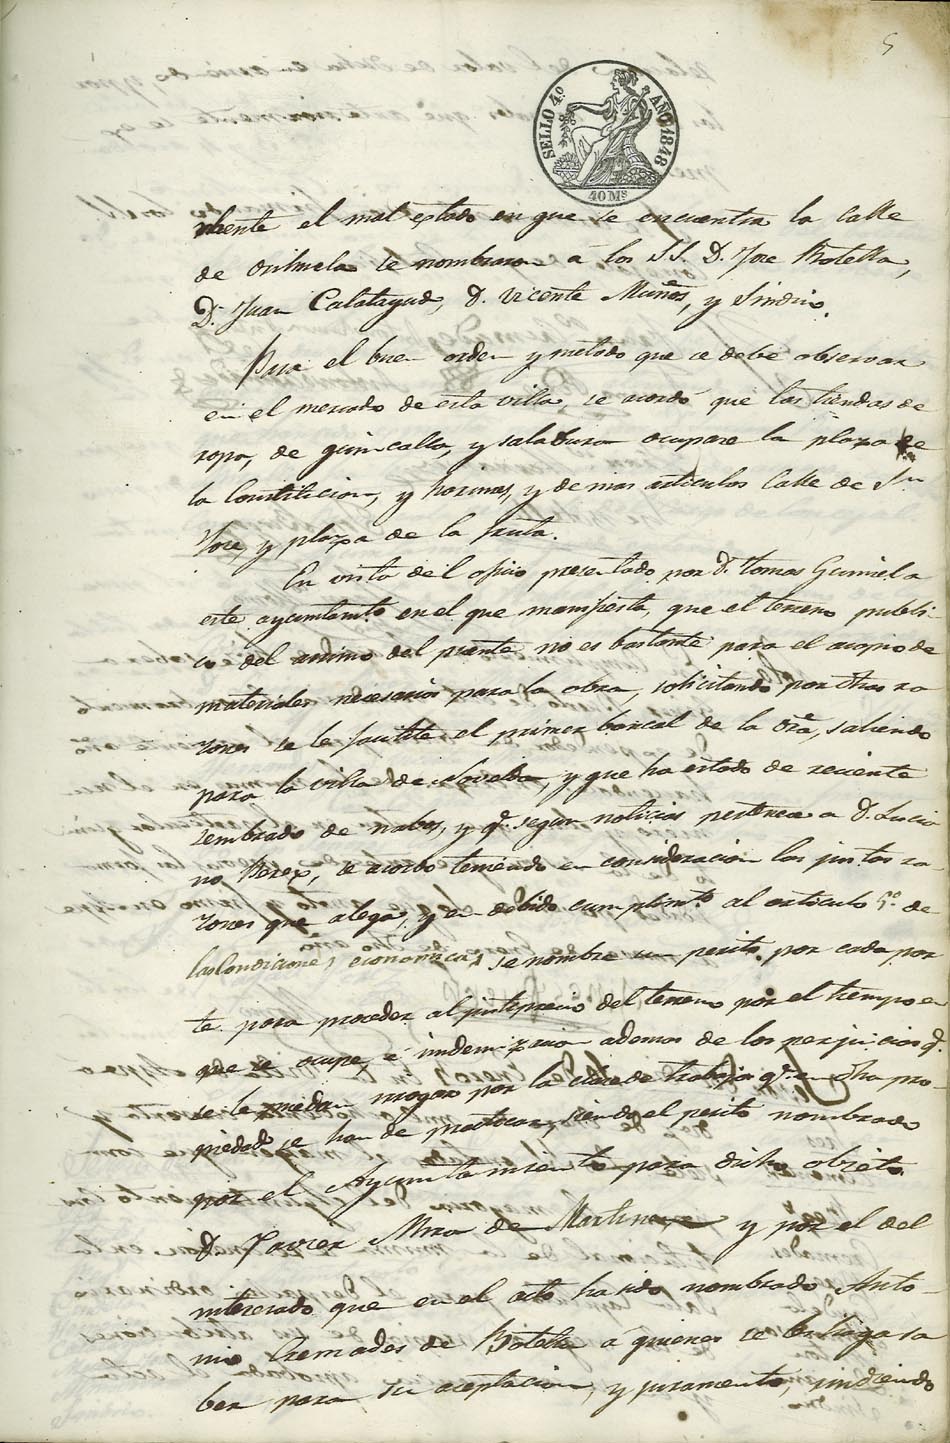 5
SELLO 4º AÑO 1848
40 Ms
mente el mal estado en que se encuentra la Calle
de orihuela se nombraron á los S.S. D. Jose Botella,
D. Juan Calatayud, D. Vicente Muños, y Sindico.
Para el buen orden y metodo que se debe observar
en el mercado de esta villa, se acordó que las tiendas de
ropa, de quincalla, y saladura ocupare la plaza de
la Constitucion, y harinas, y demas articulos Calle de Sn
Jose, y plaza de la fruta.
En vista del oficio presentado por D. Tomas Gumiel a
este ayuntamto en el que manifiesta, que el terreno publi-
co del arrimo del puente no es bastante para el acopio de
materiales necesarios para la obra, solicitando por otras ra
zones se le facilite el primer bancal de la dra, saliendo
para la villa de Novelda, y que ha estado de reciente
sembrado de nabos, y q. segun noticias pertenece a D. Lucia
no Perez, se acordo teniendo en consideracion las justas ra-
zones que alega, y en debido cumplimto al articulo 5º de
las Condiciones economicas, se nombre un perito por cada par
te para proceder al justiprecio del terreno por el tiempo en
que se ocupe, é indemnizacion ademas de los perjuicios q.
se le puedan irrogar por la clase de trabajos q. en dha pro-
piedad se han de practicar, siendo el perito nombrado
por el Ayuntamiento para dicho objeto
D. Javier Mira de Martinez y por el del
interesado que en el acto ha sido nombrado Anto-
nio Cremades de Botella á quienes se les haga sa
ber para su aceptacion, y juramento, rindiendo